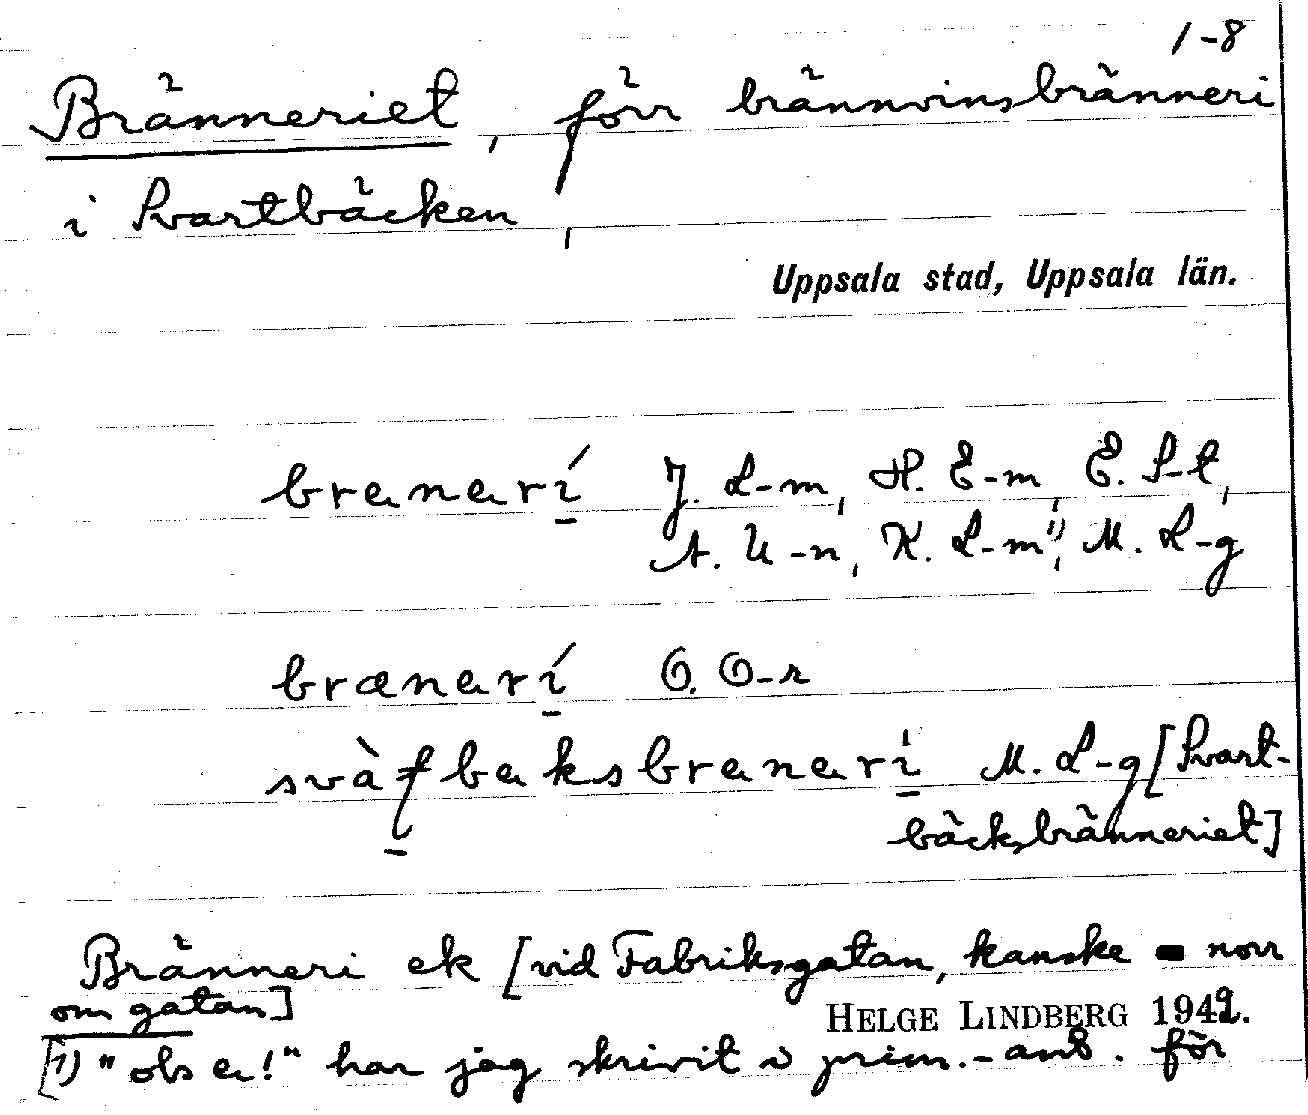 1-8
Bränneriet, förr brännvinsbränneri
i Svartbäcken,
Uppsala stad, Uppsala län.
branarí J. L-m, H. E-m, E. S-t,
A. U-n, K. L-m¹), M. L-g
brænarí O. O-r
M. L-g [Svart-
bäcksbränneriet]
Bränneri ek [vid Fabriksgatan, kanske norr
om gatan]
HELGE LINDBERG 1949.
[1) "obs a!" har jag skrivit i prim.-ant. för